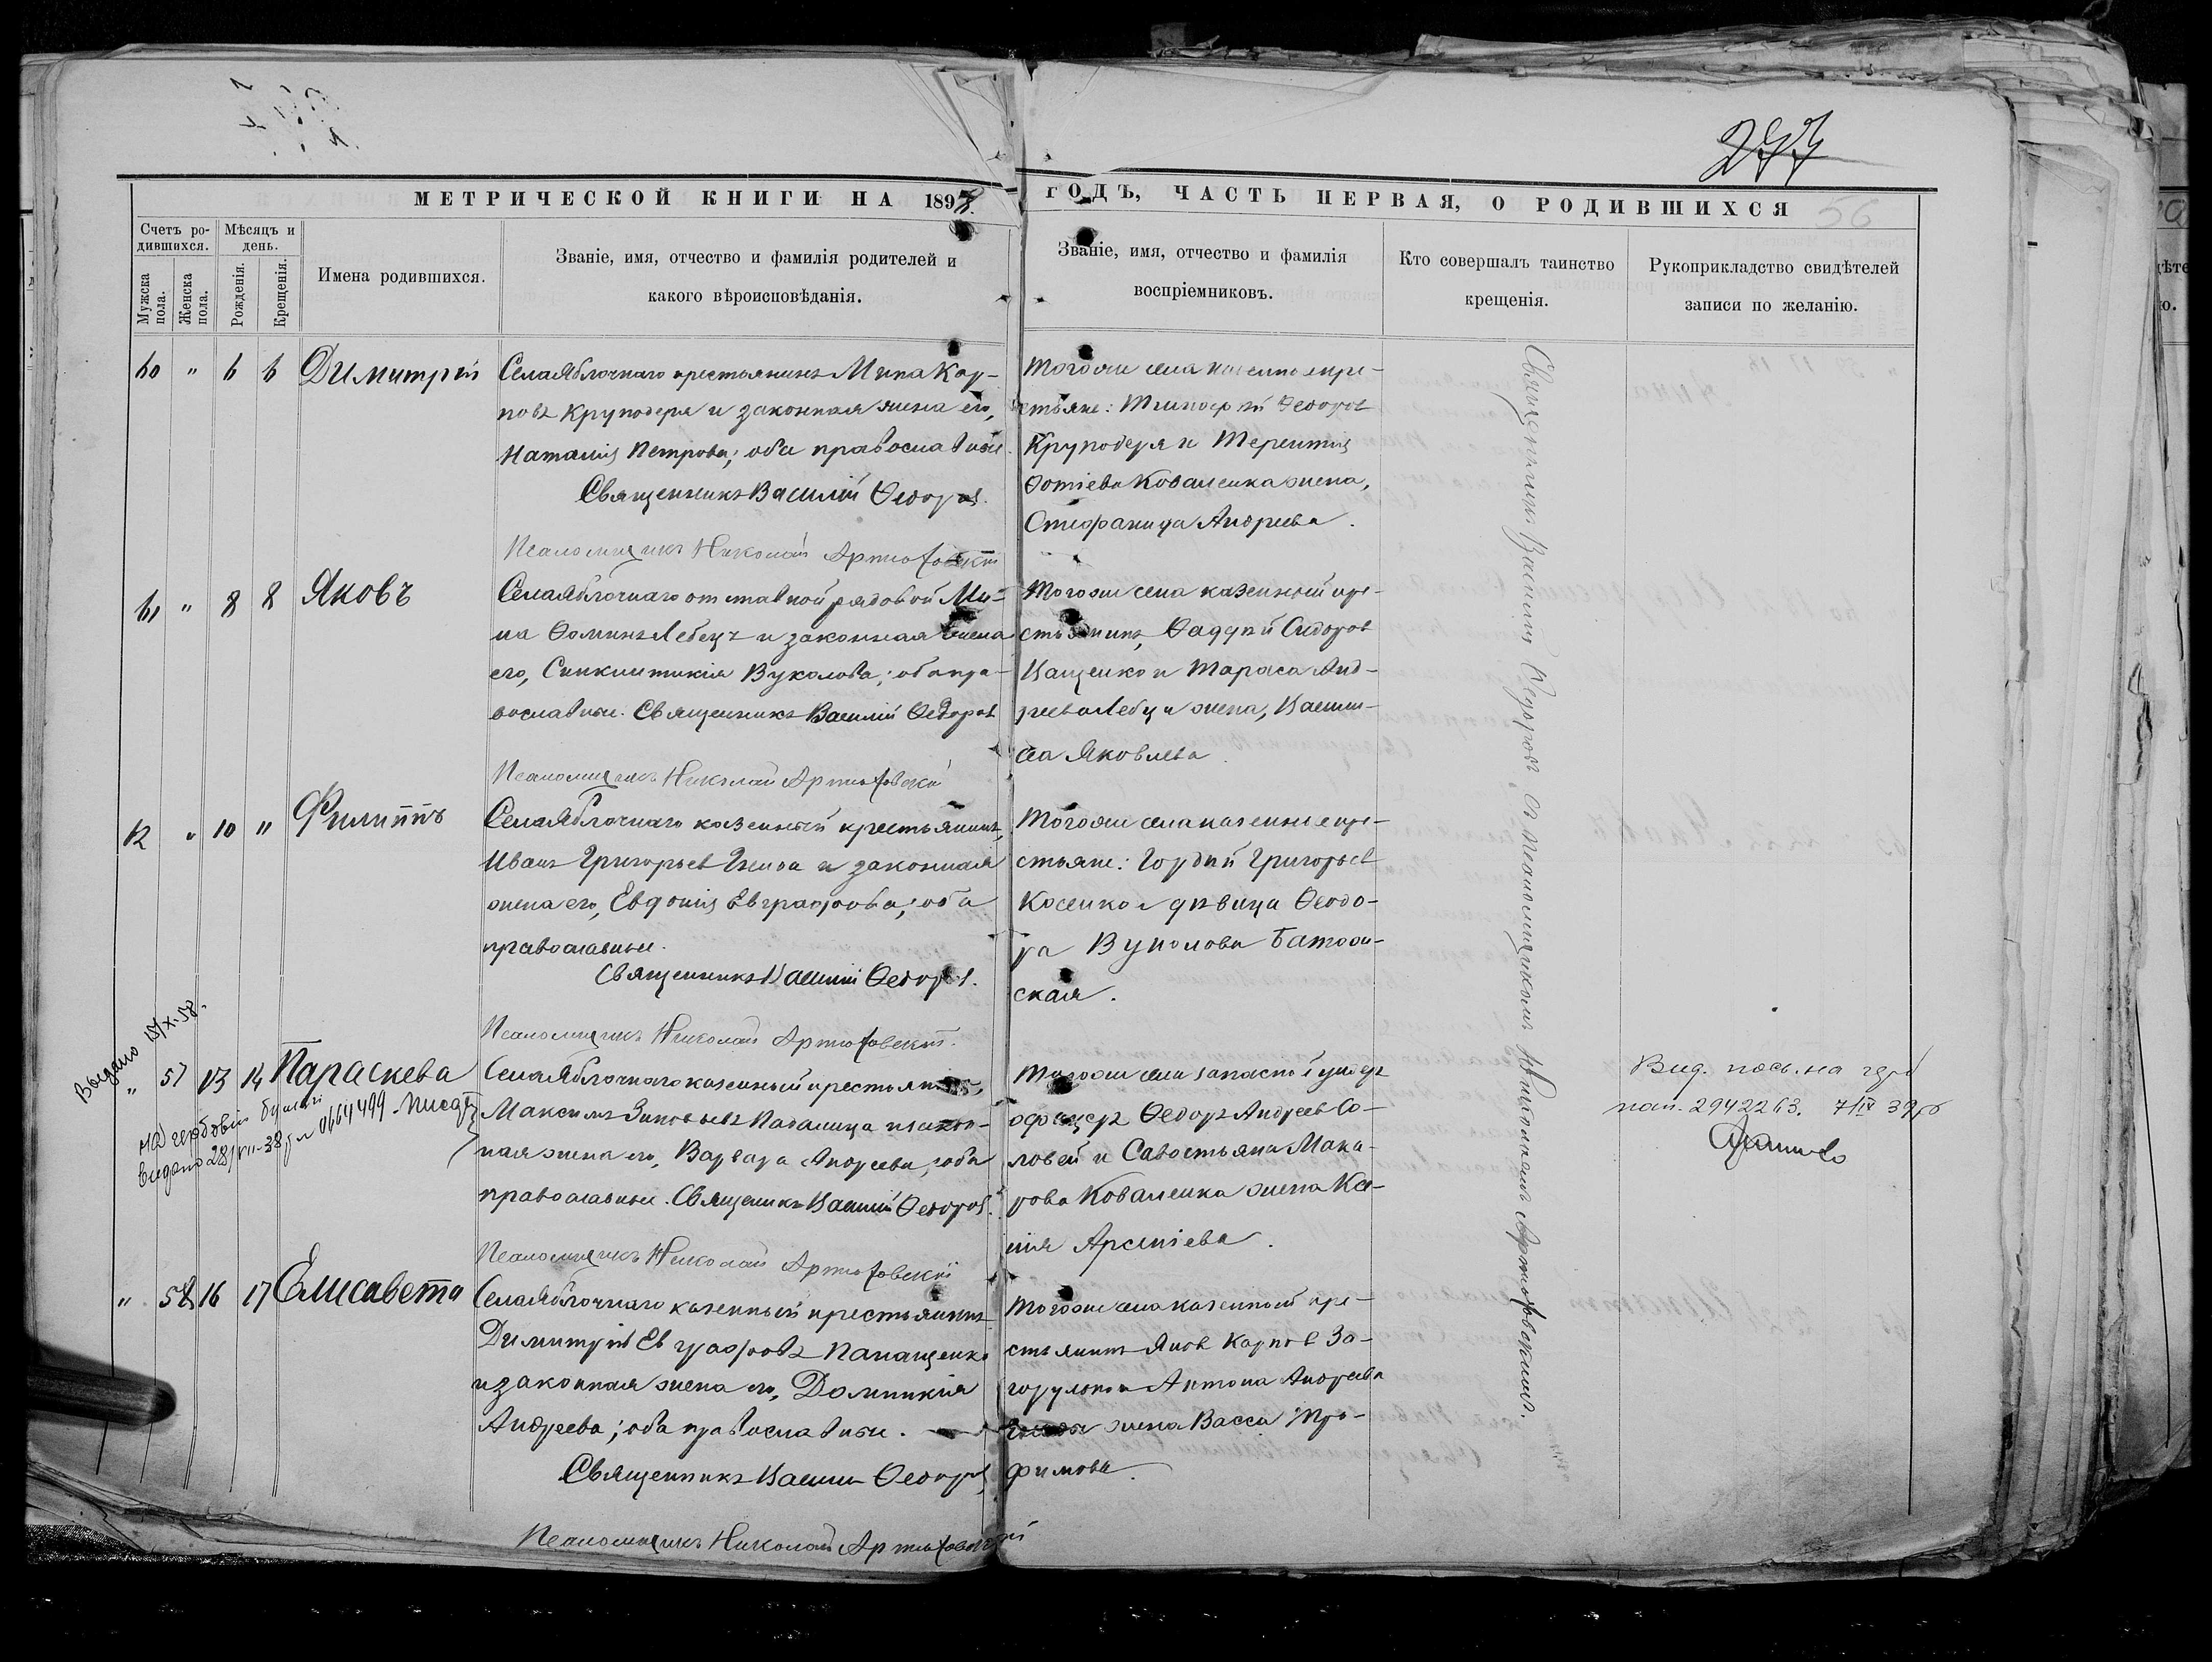 277
МЕТРИЧЕСКОЙ КНИГИ НА 1897
ГОДЪ, ЧАСТЬ ПЕРВАЯ, О РОДИВШИХСЯ
56
Счетъ ро-
дившихся.
Мѣсяцъ и
день.
Мужска
пола.
Женска
пола.
Рожденія.
Крещенія.
Имена родившихся.
Званіе, имя, отчество и фамилія родителей и
какого вѣроисповѣданія.
Званіе, имя, отчество и фамилія
воспріемниковъ.
Кто совершалъ таинство
крещенія.
Рукоприкладство свидѣтелей
записи по желанію.
60 " 6 6 Димитрій
Села Яблочнаго крестьянинъ Мина Кар-
повъ Круподеря и законная жена его,
Наталія Петрова; оба православные.
Священникъ Василій Ѳедоров.
Псаломщикъ Николай Артюховскій
Тогоже села казенные кре-
стьяне: Тимоѳей Ѳедоров
Круподеря и Терентія
Ѳотіева Коваленка жена,
Стефанида Андреева.
61 " 8 8 Яковъ
Села Яблочнаго отставной рядовой Ми-
на Ѳоминъ Лебецъ и законная жена
его, Синклитикія Вуколова; оба пра-
вославные. Священникъ Василій Ѳедоров
Псаломщикъ Николай Артюховскій
Тогоже села казенный кре-
стьянинъ, Ѳаддей Сидоров
Кащенко и Тараса Анд-
реева Лебца жена, Васили-
са Яковлева.
62 " 10 " Филиппъ
Села Яблочнаго казенный крестьянинъ,
Иванъ Григорьев и законная
жена его, Евдокія Евграфова; оба
православные.
Священникъ Василій Ѳедоров.
Псаломщикъ Николай Артюховскій.
Тогоже села казенные кре-
стьяне: Гордій Григорьев
Косенко и дѣвица Ѳеодо-
ра Вуколова
ская.
Выдано 15/X-57.
" 57 13 14 Параскева
на гербовій бумагі
видано 28/VII-38 р № 0664499
Села Яблочнаго казенный крестьянинъ,
Максимъ Зиновьевъ Падалица и закон-
ная жена его, Варвара Андреева, оба
православные. Священникъ Василій Ѳедоров.
Псаломщикъ Николай Артюховскій
Тогоже села запасной унтер
офицеръ Ѳедоръ Андреев Со-
ловей и Савостьяна Мака-
рова Коваленка жена Ксе-
нія Арсеніева.
Вид. посв. на герб
пап. 2942263. 7/IV 39 р
" 58 16 17 Елисавета
Села Яблочнаго казенный крестьянинъ
Димитрій Евграфовъ Панащенко
и законная жена его, Домникія
Андреева; оба православные.
Священникъ Василій Ѳедоров
Псаломщикъ Николай Артюховскій
Тогоже села казенный кре-
стьянинъ Яков Карпов За-
горулько и Антона Андреева
жена Васса Тро-
фимова.
Священникъ Василій Ѳедоровъ съ псаломщикомъ Николаемъ Артюховскимъ.